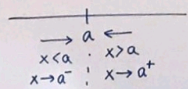 → a ←
x<a x>a
x→a⁻ x→a⁺